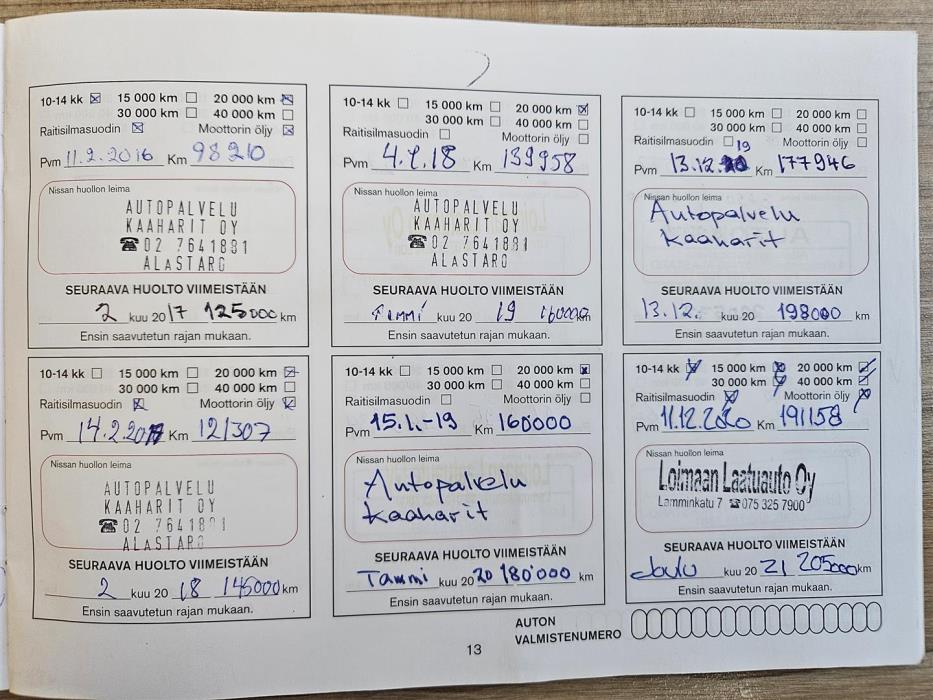 10-14 kk 15 000 km 20 000 km
30 000 km 40 000 km
Raitisilmasuodin Moottorin öljy
Pvm 11.2.2016 Km 98210
Nissan huollon leima
AUTOPALVELU
KAAHARIT OY
☎02 7641881
ALASTARO
SEURAAVA HUOLTO VIIMEISTÄÄN
2 kuu 2017 125000 km
Ensin saavutetun rajan mukaan.
10-14 kk 15 000 km 20 000 km
30 000 km 40 000 km
Raitisilmasuodin Moottorin öljy
Pvm 14.2.2017 Km 121307
Nissan huollon leima
AUTOPALVELU
KAAHARIT OY
☎02 7641881
ALASTARO
SEURAAVA HUOLTO VIIMEISTÄÄN
2 kuu 20 18 145000 km
Ensin saavutetun rajan mukaan.
10-14 kk 15 000 km 20 000 km
30 000 km 40 000 km
Raitisilmasuodin Moottorin öljy
Pvm 18 Km 139958
Nissan huollon leima
AUTOPALVELU
KAAHARIT OY
☎02 7641881
ALASTARO
SEURAAVA HUOLTO VIIMEISTÄÄN
Tammi kuu 20 19 160000 km
Ensin saavutetun rajan mukaan.
10-14 kk 15 000 km 20 000 km
30 000 km 40 000 km
Raitisilmasuodin Moottorin öljy
Pvm 15.1.-19 Km 160000
Nissan huollon leima
Autopalvelu
Kaaharit
SEURAAVA HUOLTO VIIMEISTÄÄN
Tammi kuu 20 20 180'000 km
Ensin saavutetun rajan mukaan.
10-14 kk 15 000 km 20 000 km
30 000 km 40 000 km
Raitisilmasuodin Moottorin öljy
19
Pvm 13.12. Km 177946
Nissan huollon leima
Autopalvelu
Kaaharit
SEURAAVA HUOLTO VIIMEISTÄÄN
13.12. kuu 20 198000 km
Ensin saavutetun rajan mukaan.
10-14 kk 15 000 km 20 000 km
30 000 km 40 000 km
Raitisilmasuodin Moottorin öljy
Pvm 11.12.2020 Km 191158
Nissan huollon leima
Loimaan Laatuauto Oy
Lamminkatu 7 ☎075 325 7900
SEURAAVA HUOLTO VIIMEISTÄÄN
Joulu kuu 20 21 205000 km
Ensin saavutetun rajan mukaan.
AUTON
VALMISTENUMERO
13